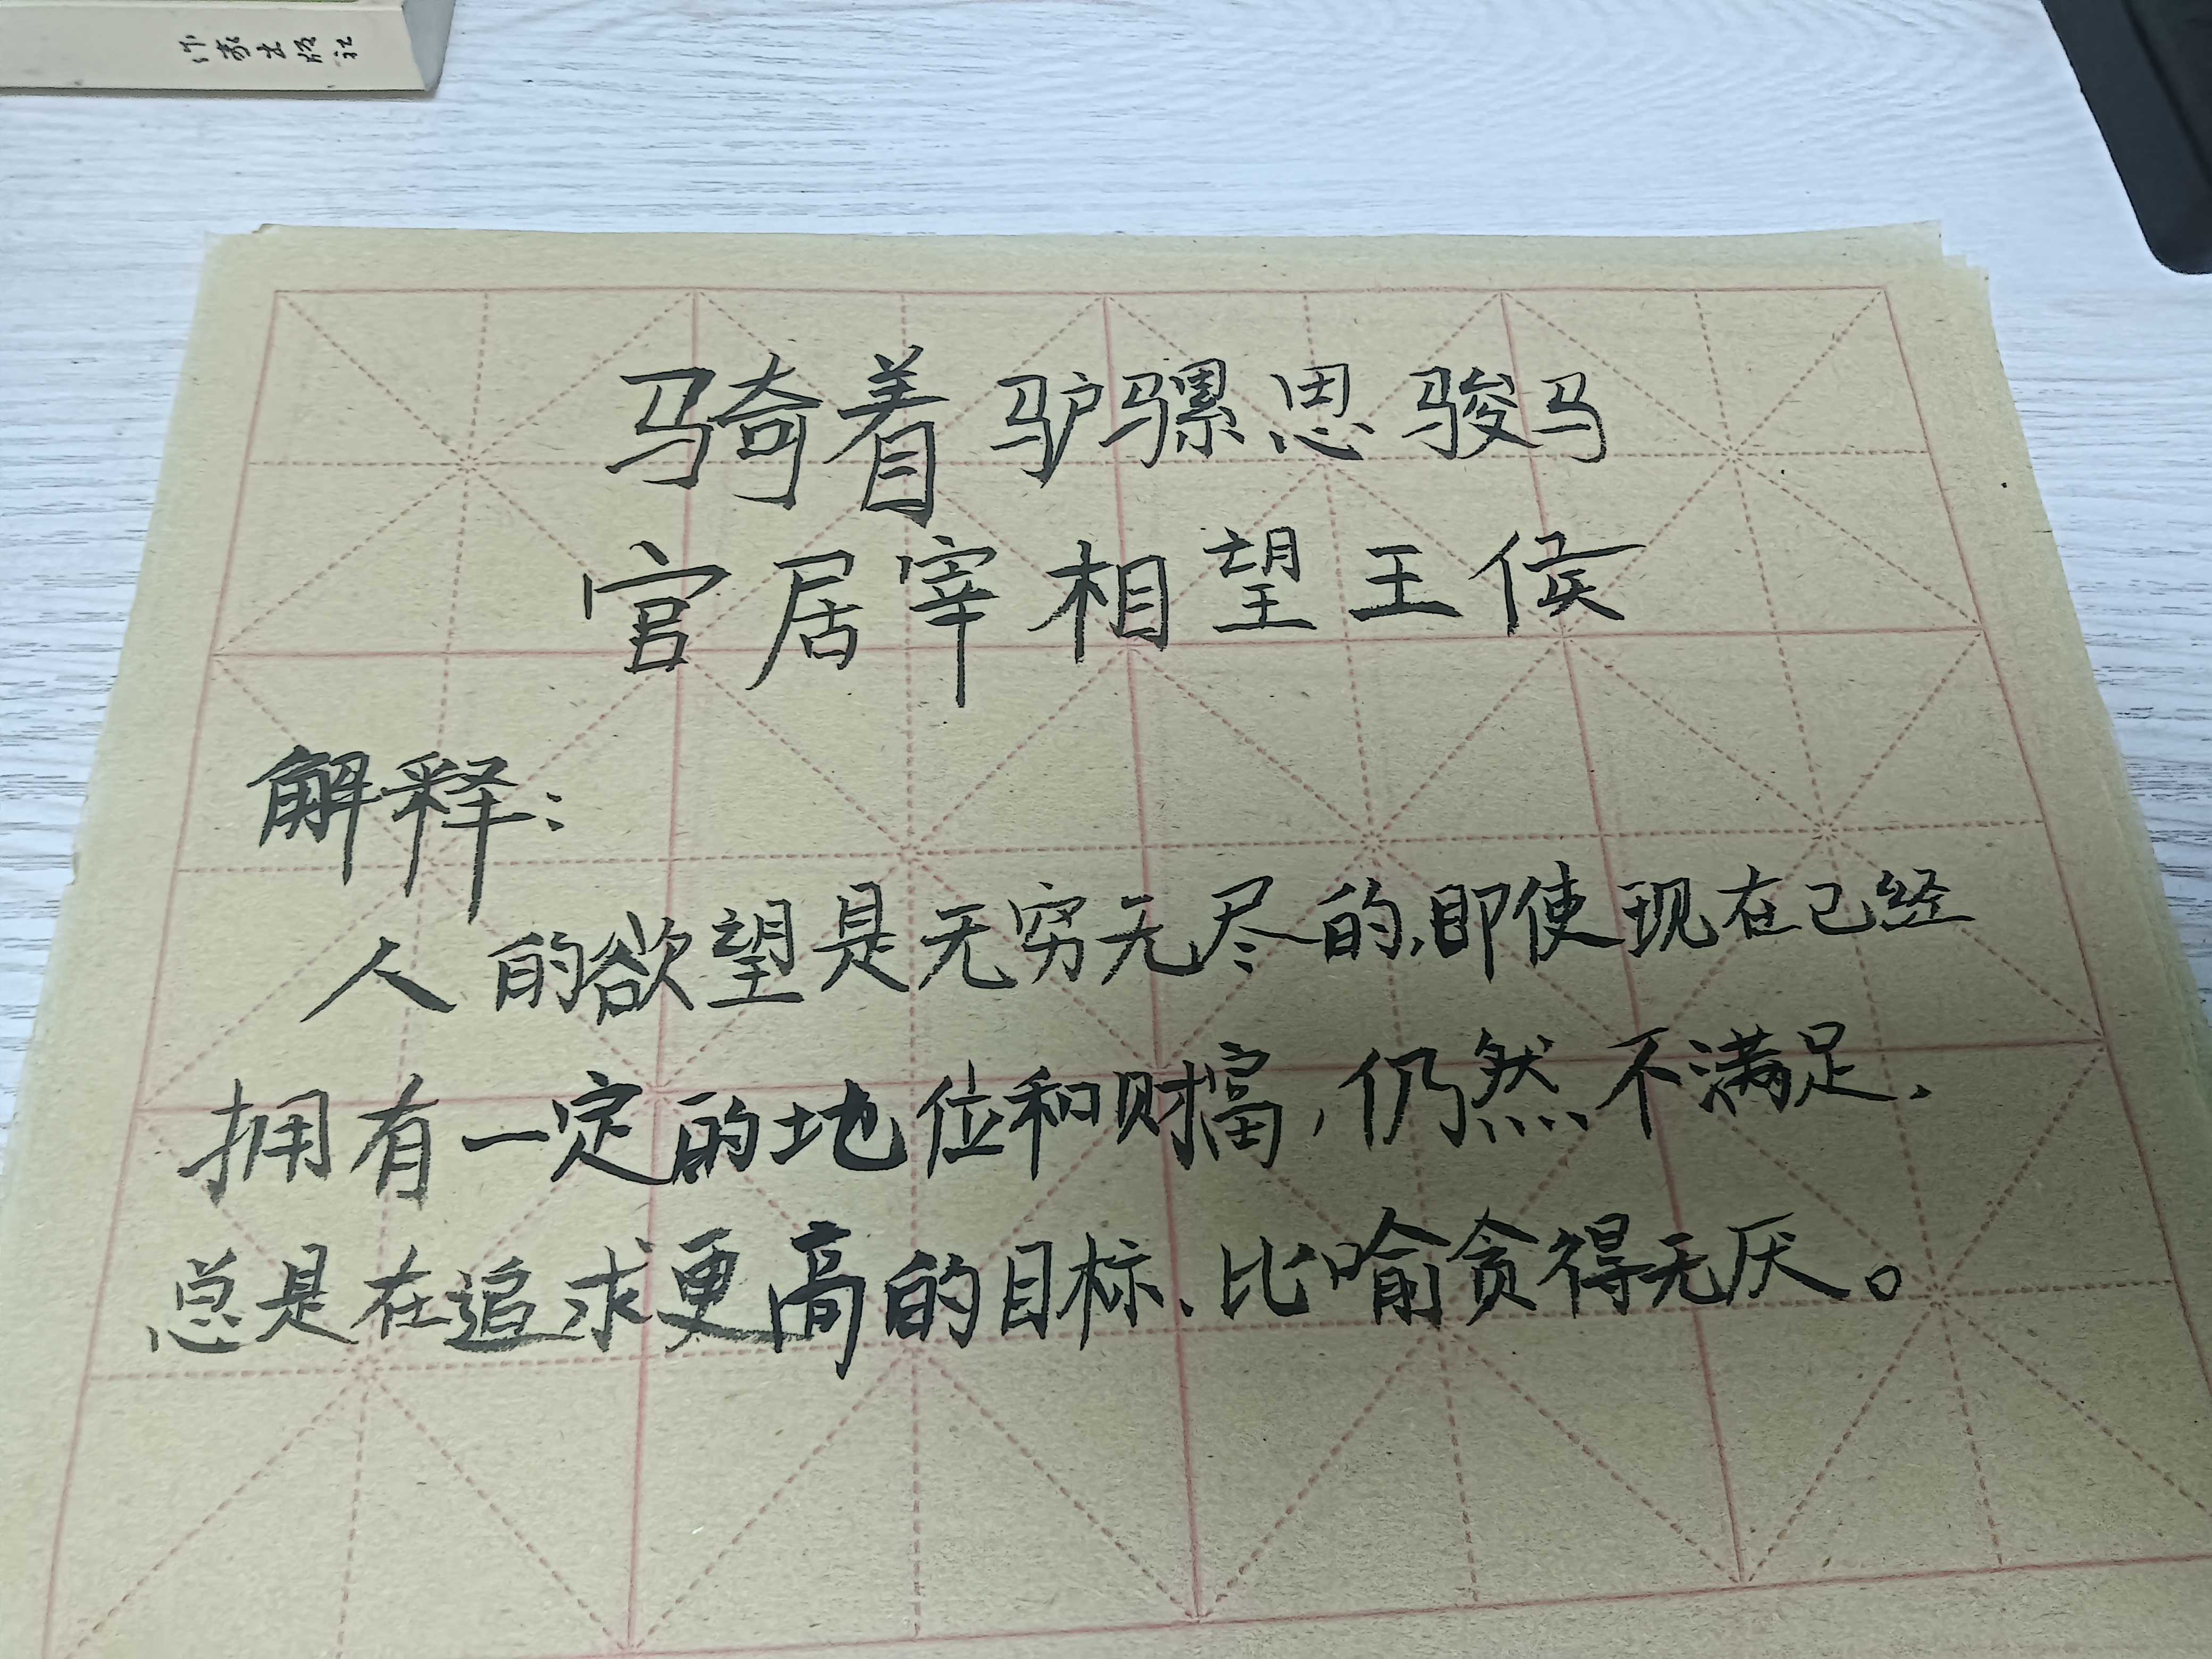 作家出版社
骑着驴骡思骏马
官居宰相望王侯
解释：
人的欲望是无穷无尽的，即使现在已经
拥有一定的地位和财富，仍然不满足，
总是在追求更高的目标、比喻贪得无厌。